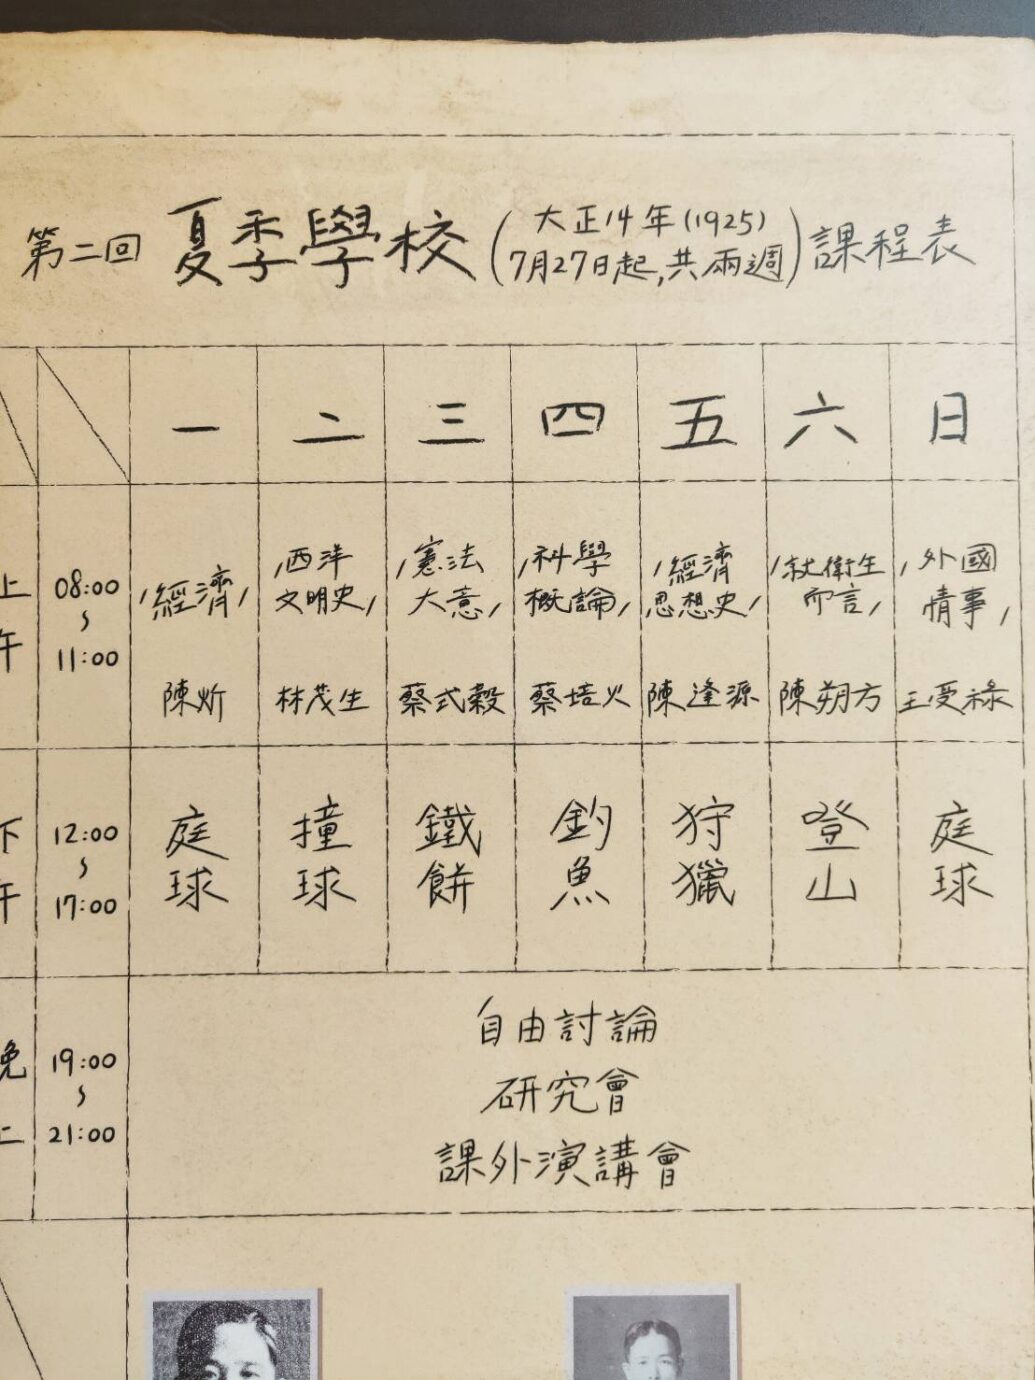 第二回 夏季學校 (大正14年(1925) 7月27日起,共兩週) 課程表
一 二 三 四 五 六 日
上午
08:00
~
11:00
"經濟"
陳炘
"西洋
文明史"
林茂生
"憲法
大意"
蔡式穀
"科學
概論"
蔡培火
"經濟
思想史"
陳逢源
"就衛生
而言"
陳朔方
"外國
情事"
王受祿
下午
12:00
~
17:00
庭球
撞球
鐵餅
釣魚
狩獵
登山
庭球
晚上
19:00
~
21:00
自由討論
研究會
課外演講會